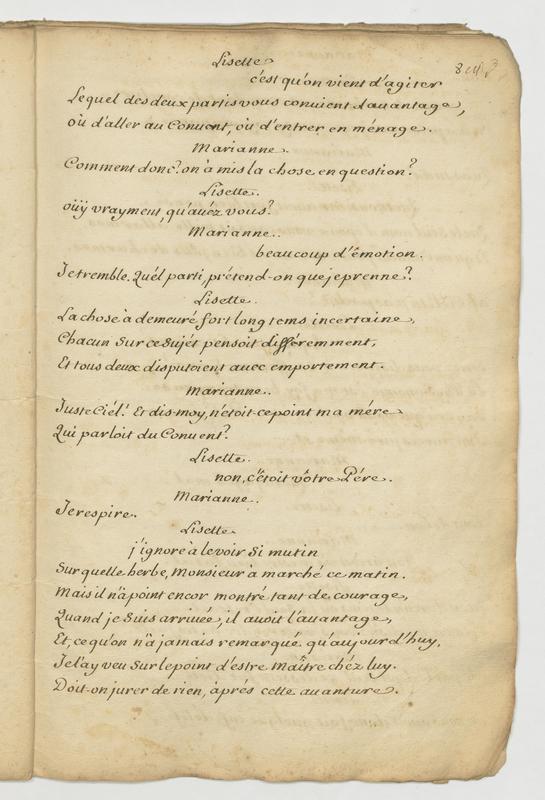 Lisette.
c'est qu'on vient d'agiter
Lequel des deux partis vous convient davantage,
où d'aller au Couvent, où d'entrer en ménage.
Marianne.
Comment donc? on à mis la chose en question?
Lisette.
oüÿ vrayment, qu'avéz vous?
Marianne..
beaucoup d'êmotion.
Je tremble. Quél parti, prétend-on que je prenne?
Lisette.
La chose à demeuré fort long tems incertaine,
Chacun Sur ce Sujét pensoit différemment,
Et tous deux disputoient avec emportement.
Marianne..
Juste Ciél! Et dis-moy, n'étoit-ce point ma mére
Qui parloit du Couvent?
Lisette.
non, c'étoit vôtre Pére.
Marianne..
Je respire.
Lisette.
j'ignore à le voir Si mutin
Sur quelle herbe, Monsieur à marché ce matin.
Mais il n'a point encor montré tant de courage,
Quand je Suis arrivée, il avoit l'avantage,
Et, ce qu'on n'a jamais remarqué qu'aujourd'huy,
Je l'ay veu Sur le point d'estre Maître chéz luy.
Doit-on jurer de rien, àprés cette avanture.